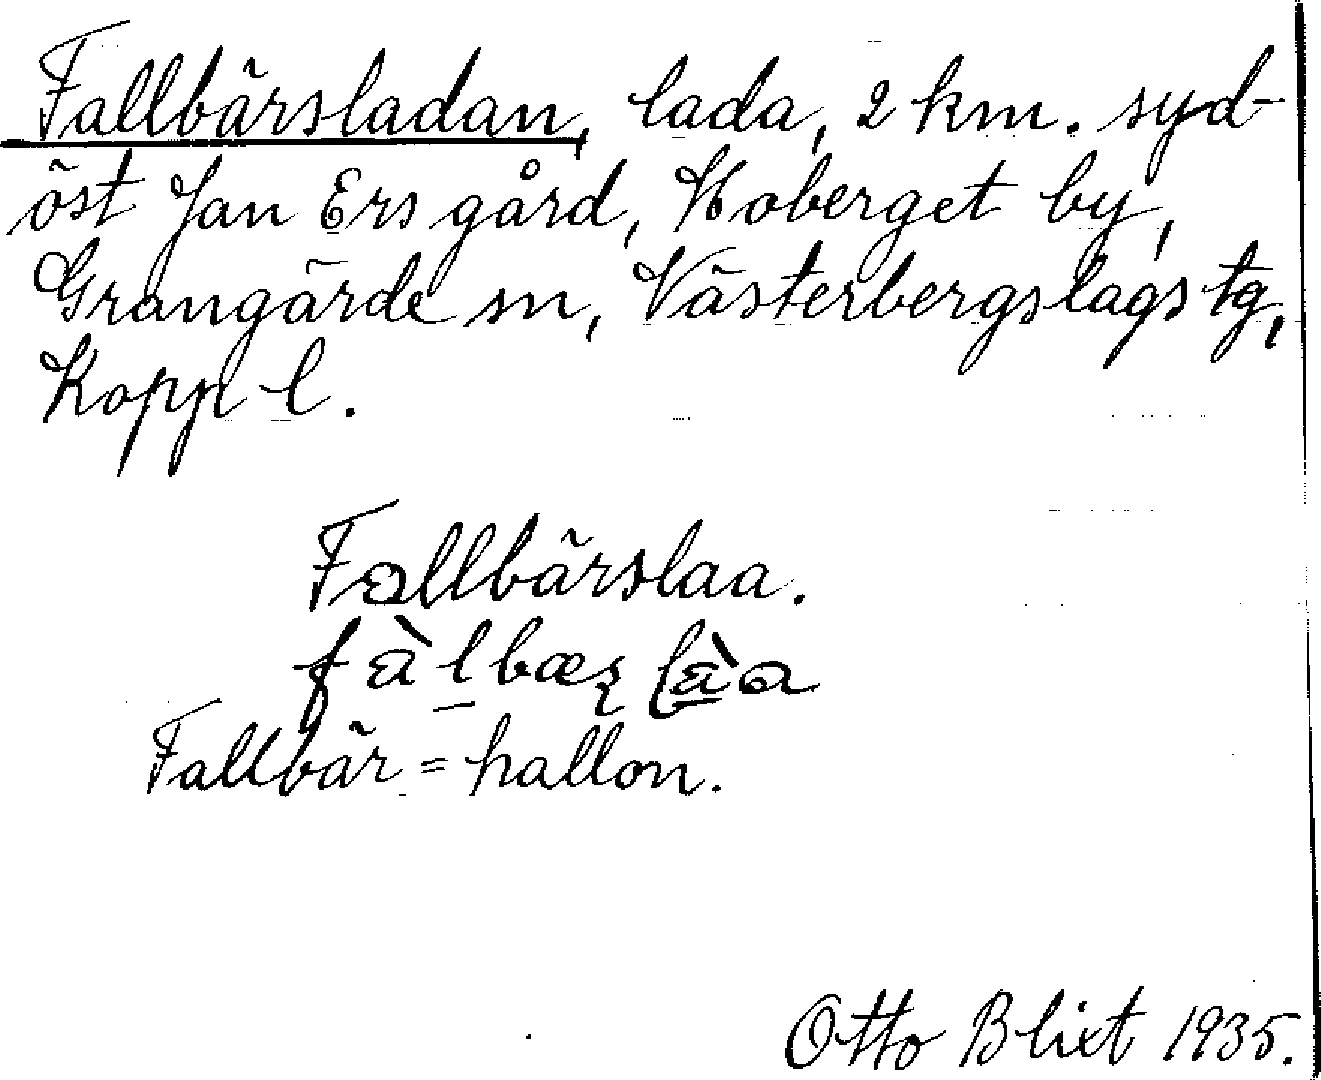 Fallbärsladan, lada, 2 km. syd-
öst Jan Ers gård, Hoberget by,
Grangärde sn, Västerbergslags tg,
Kopp l.
Fallbärslaa.
Fallbär = hallon.
Otto Blixt 1935.